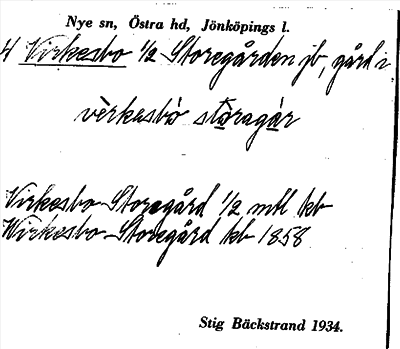 Nye sn, Östra hd, Jönköpings l.
4 Virkesbo 1/2 Storegården jb, gård i
vèrkesbò störagár
Virkesbo Storegård 1/2 mtl kb
Wirkesbo Storegård kb 1858
Stig Bäckstrand 1934.